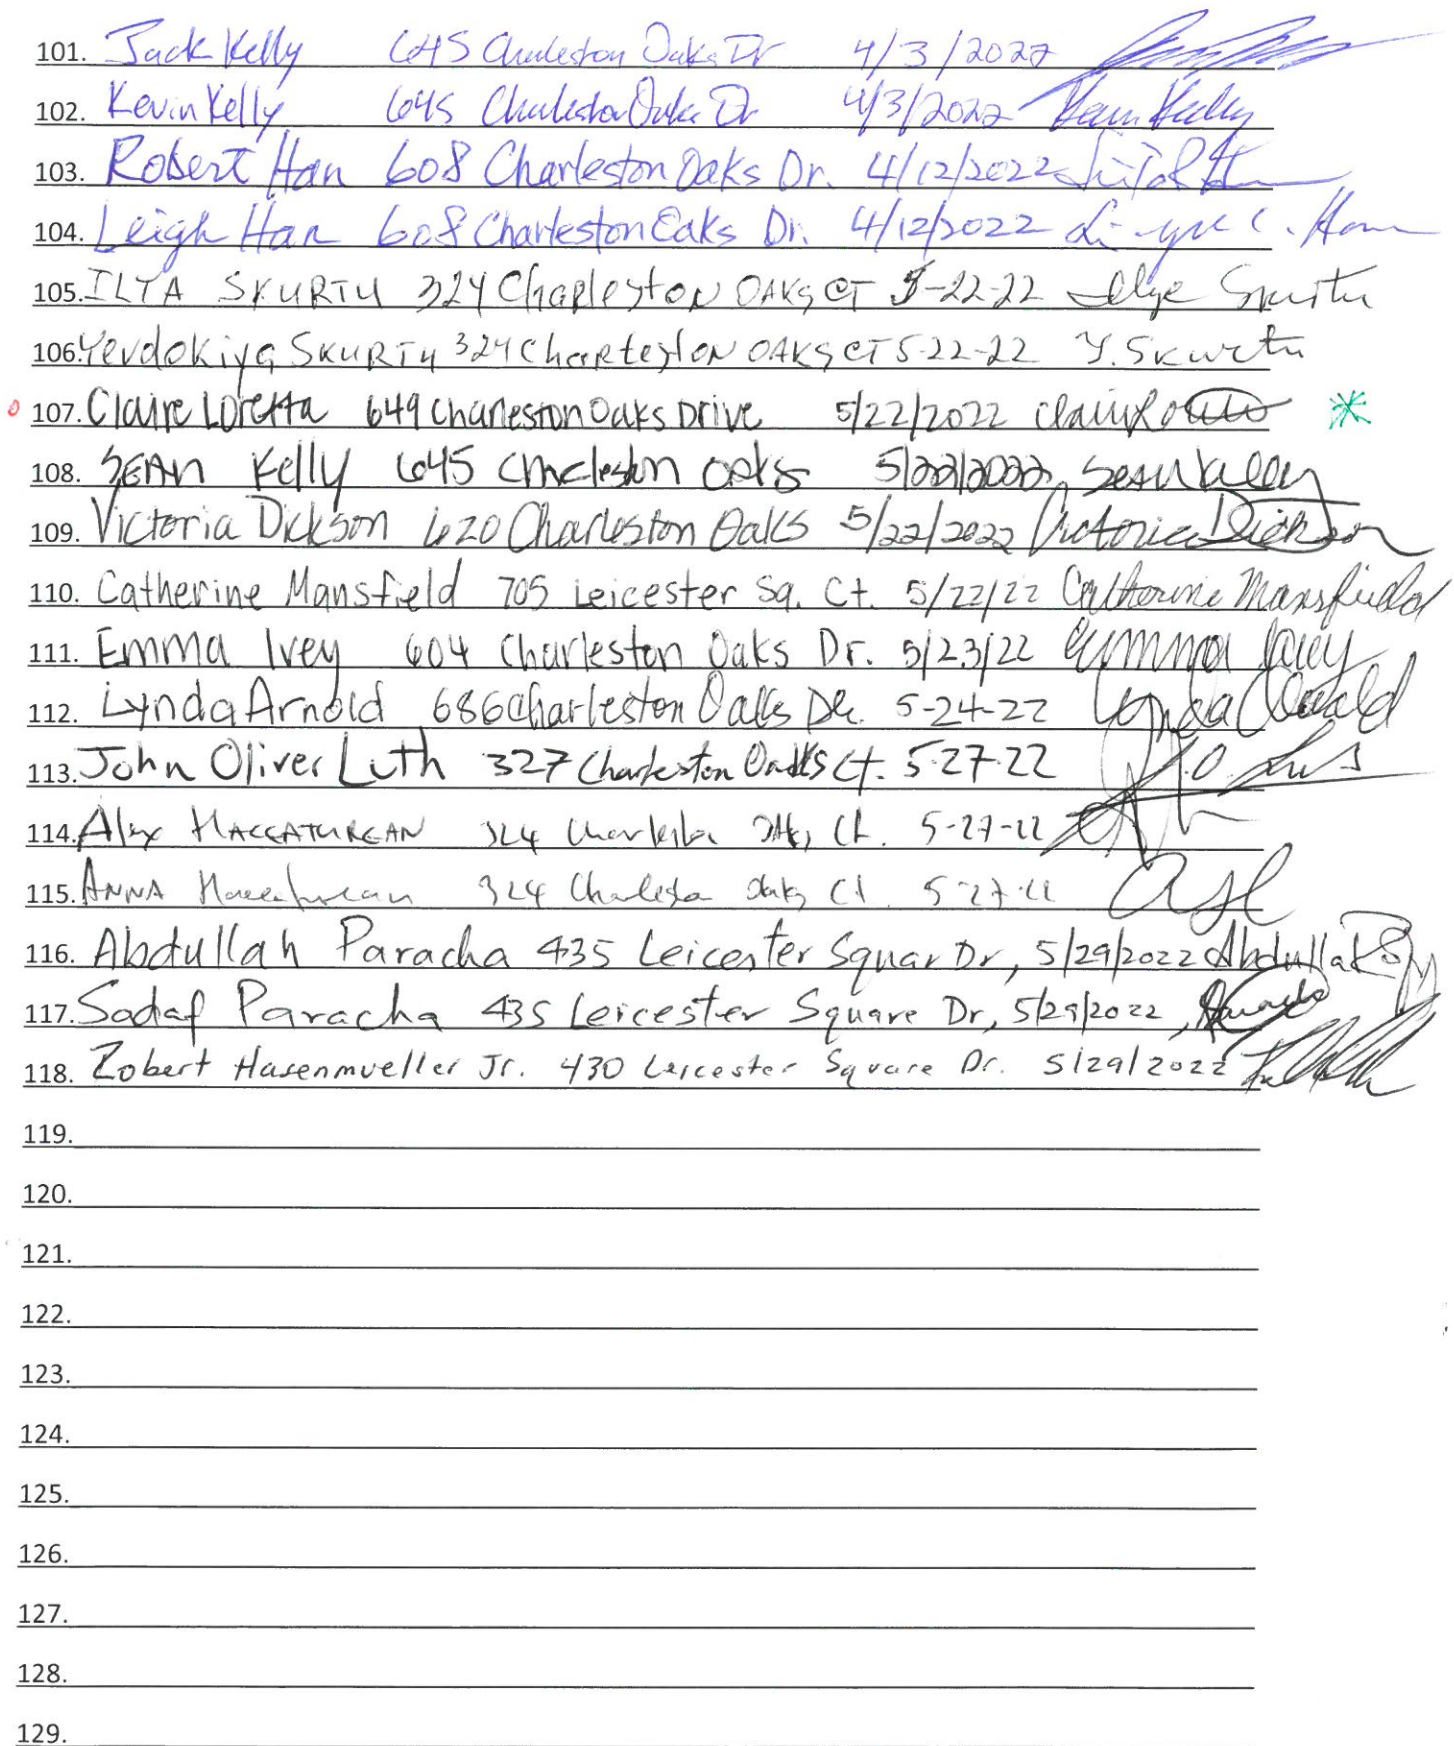 101. Jack Kelly 645 Charleston Oaks Dr 4/3/2022
102. Kevin Kelly 645 Charleston Oaks Dr 4/3/2022 Kevin Kelly
103. Robert Han 608 Charleston Oaks Dr. 4/12/2022
104. Leigh Han 608 Charleston Oaks Dr. 4/12/2022 C. Han
105. ILYA SKURTU 324 Charleston OAKS CT 5-22-22 Ilya Skurtu
106. Yevdokiya SKURTU 324 Charleston OAKS CT 5-22-22 Y. Skurtu
107. Claire Loretta 649 Charleston Oaks Drive 5/22/2022 Claire
108. SEAN Kelly 645 Charleston Oaks 5/22/2022 Sean Kelly
109. Victoria Dickson 620 Charleston Oaks 5/22/2022 Victoria Dickson
110. Catherine Mansfield 705 Leicester Sq. Ct. 5/22/22 Catherine Mansfield
111. Emma Ivey 604 Charleston Oaks Dr. 5/23/22 Emma Ivey
112. Lynda Arnold 686 Charleston Oaks Dr. 5-24-22 Lynda Arnold
113. John Oliver Luth 327 Charleston Oaks Ct. 5-27-22 J.O.
114. Alex HACCATUREAN 324 Charleston Oaks Ct. 5-27-22
115. ANNA 324 Charleston Oaks Ct 5-27-22
116. Abdullah Paracha 435 Leicester Squar Dr, 5/29/2022 Abdullah
117. Sadaf Paracha 435 Leicester Square Dr, 5/29/2022,
118. Robert Hasenmueller Jr. 430 Leicester Square Dr. 5/29/2022
119.
120.
121.
122.
123.
124.
125.
126.
127.
128.
129.